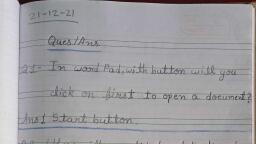 21-12-21
Ques/Ans
Q1- In word Pad, with button will you
click on first to open a document?
Ans1 Start button.